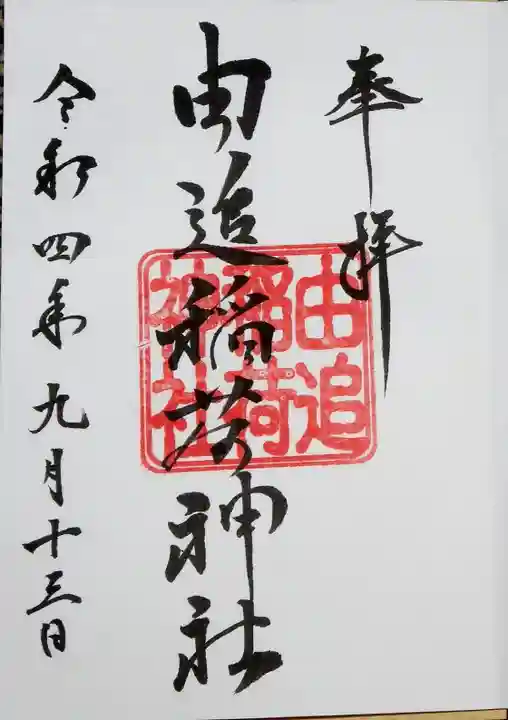 奉拝
由追稲荷神社
由追
稲荷
神社
令和四年九月十三日